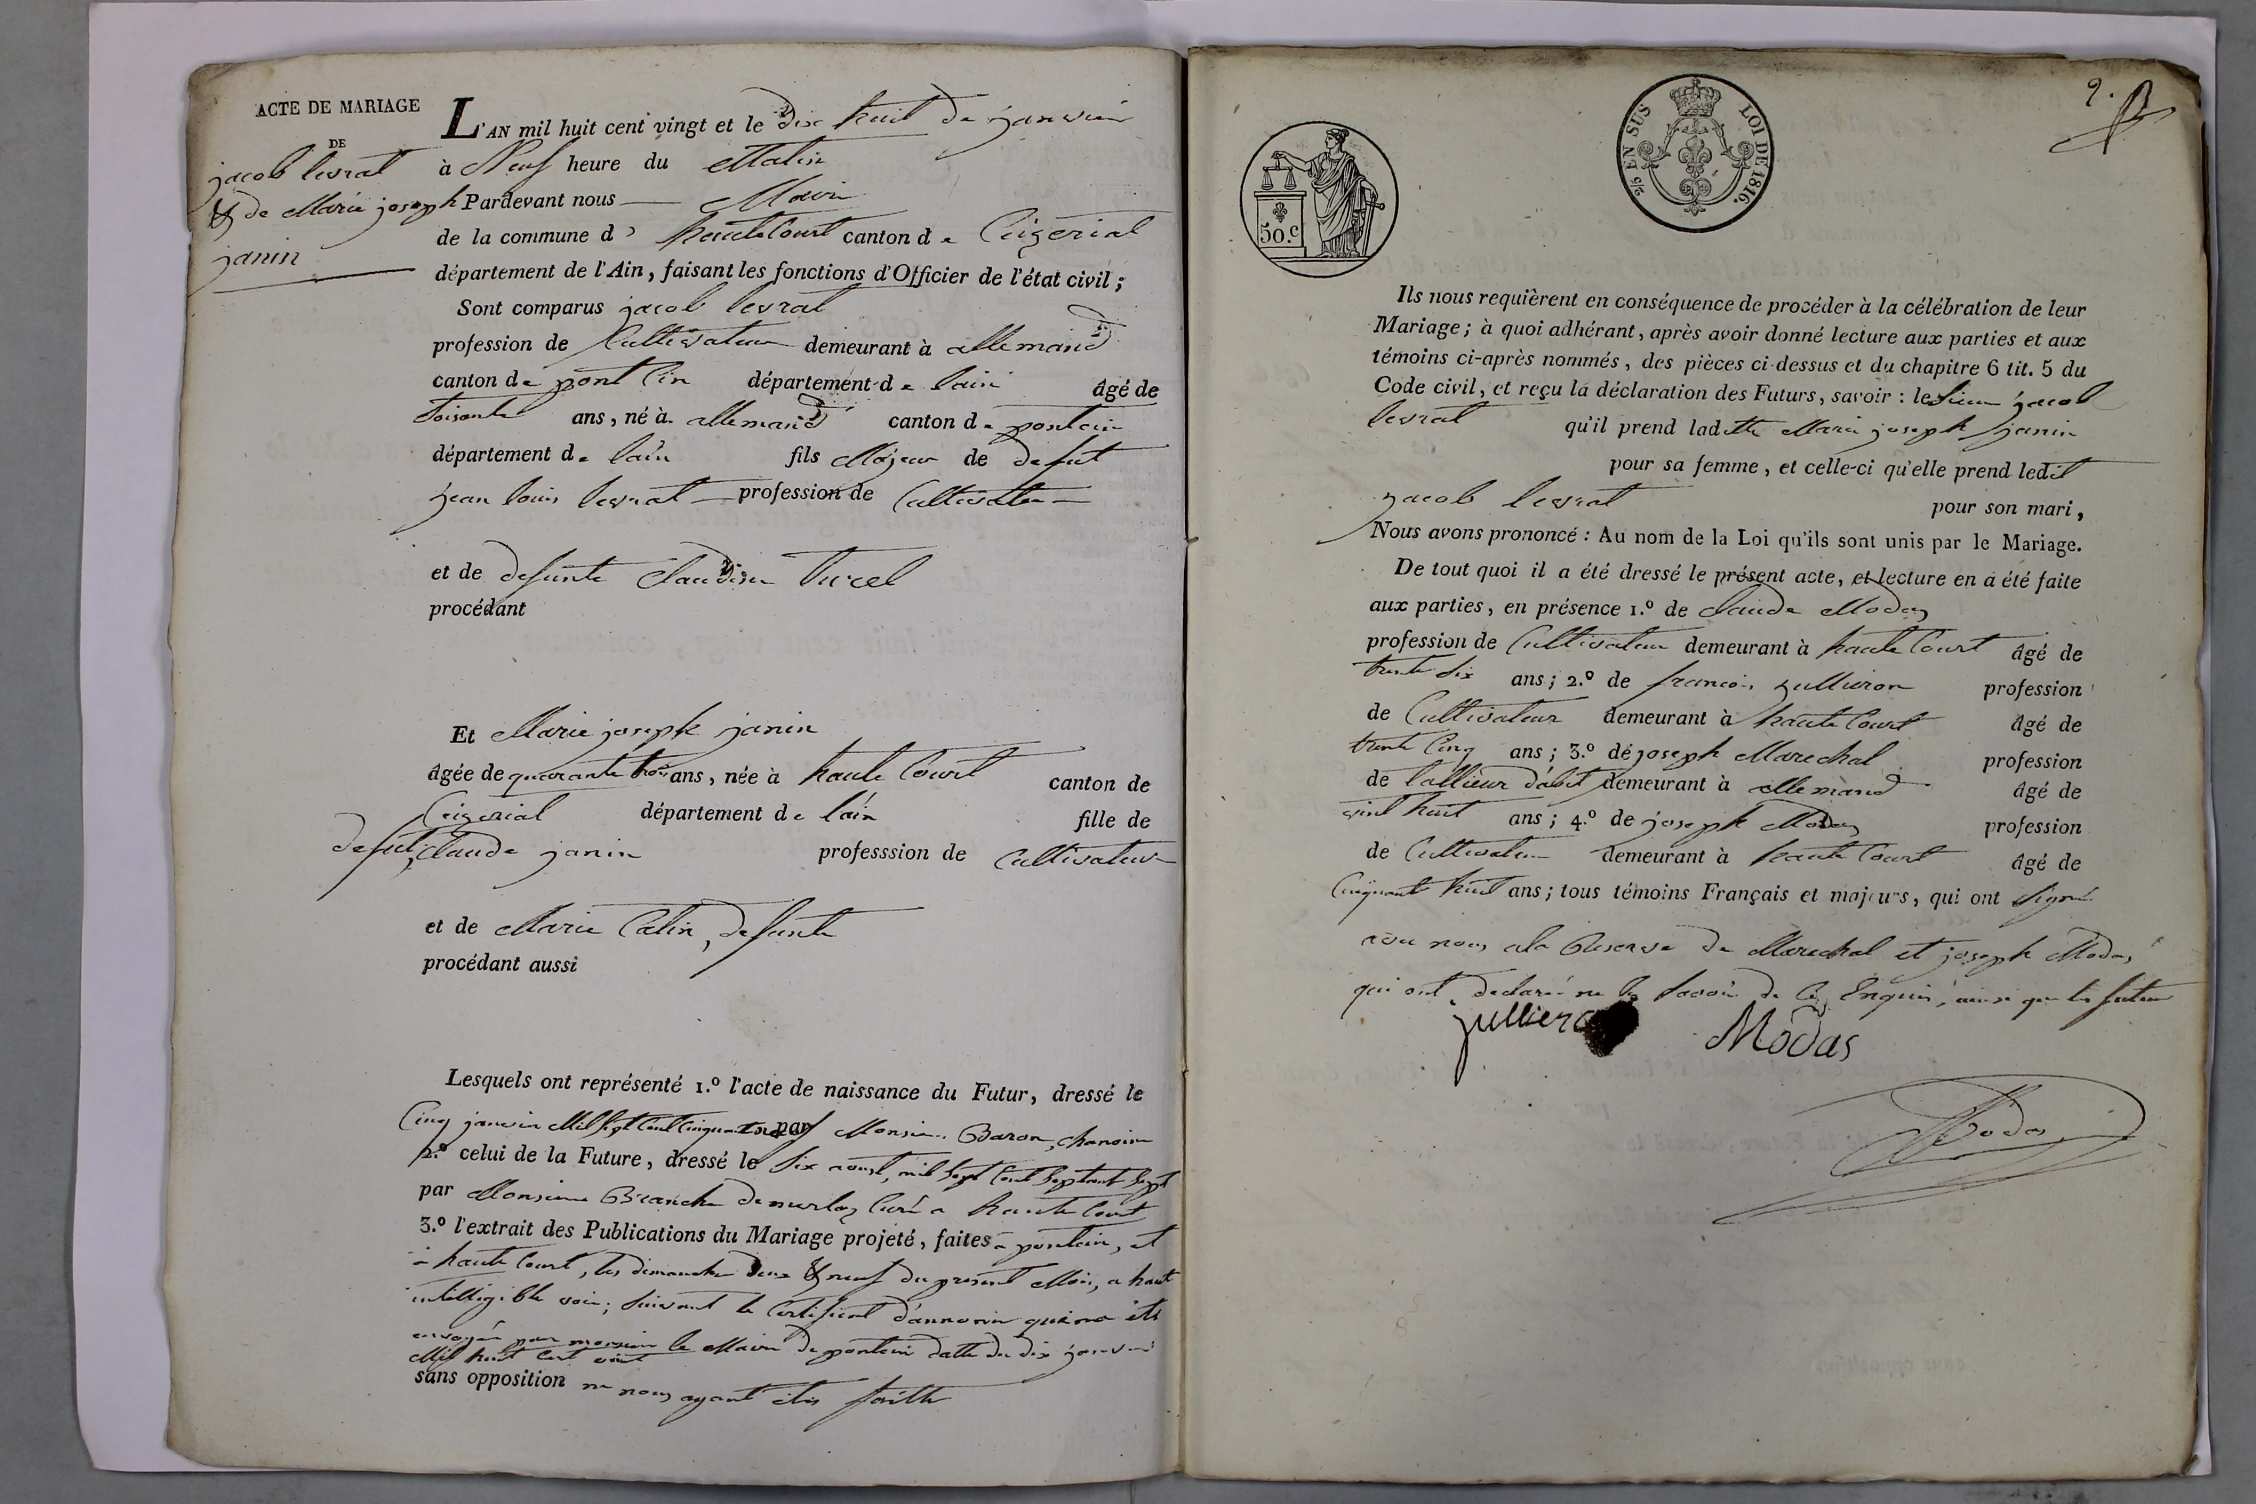 ACTE DE MARIAGE
DE
jacob levrat
& de Marie joseph
janin
L'AN mil huit cent vingt et le dix huit de janvier
à Neuf heure du Matin
Pardevant nous Maire
de la commune d' hautecourt canton de Ceizeriat
département de l'Ain, faisant les fonctions d'Officier de l'état civil ;
Sont comparus jacob levrat
profession de Cultivateur demeurant à allemand
canton de pont din département de lain âgé de
soisante ans, né à allemand canton de pontein
département de lain fils Majeur de defut
jean louis levrat profession de Cultivateur
et de defunte Claudine
procédant
Et Marie joseph janin
âgée de quarante trois ans, née à haute Court canton de
Ceizeriat département de lain fille de
defut Claude janin professsion de Cultivateur
et de Marie Catin, defunte
procédant aussi
Lesquels ont représenté 1.º l'acte de naissance du Futur, dressé le
Cinq janvier Mil sept Cent Cinquante neuf par Monsieur Baron, chanoine
2.º celui de la Future, dressé le six aoust, mil sept Cent septante sept
par Monsieur Branche Curé a haute Court
3.º l'extrait des Publications du Mariage projeté, faites a pontein, et
a haute Court, les dimanche deux & neuf du present Mois, a haute
intelligible voix ; suivant le Certificat d'annonce qui a été
envoyé par monsieur le Maire de pontein datte du dix janvier
Mil huit Cent vint
sans opposition ne nous ayant étés faitte
2.
50.C
2/5 EN SUS
LOI DE 1816.
Ils nous requièrent en conséquence de procéder à la célébration de leur
Mariage ; à quoi adhérant, après avoir donné lecture aux parties et aux
témoins ci-après nommés, des pièces ci-dessus et du chapitre 6 tit. 5 du
Code civil, et reçu la déclaration des Futurs, savoir : le Sieur jacob
levrat qu'il prend ladette Marie joseph janin
pour sa femme, et celle-ci qu'elle prend ledit
jacob levrat pour son mari,
Nous avons prononcé : Au nom de la Loi qu'ils sont unis par le Mariage.
De tout quoi il a été dressé le présent acte, et lecture en a été faite
aux parties, en présence 1.º de Claude Modas
profession de Cultivateur demeurant à haute Court âgé de
trente six ans ; 2.º de francois jullieron profession
de Cultivateur demeurant à haute Court âgé de
trente Cinq ans ; 3.º de joseph Marechal profession
de tallieur d'abit demeurant à allemand âgé de
vint huit ans ; 4.º de joseph Modas profession
de Cultivateur demeurant à haute Court âgé de
Cinquant huit ans ; tous témoins Français et majeurs, qui ont signé
avec nous a la Reserve de Marechal et joseph Modas
qui ont declaré ne le savoir de ce Enquis, ainsi que les futeur
jullieron Modas
Modas